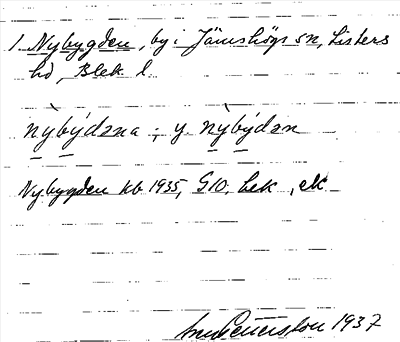 1. Nybygden, by i Jämshögs sn, Listers
hd, Blek. l.
nỳbýdəna ; y. nỳbýdən
Nybygden kb 1935, G10, bek, ek
1937